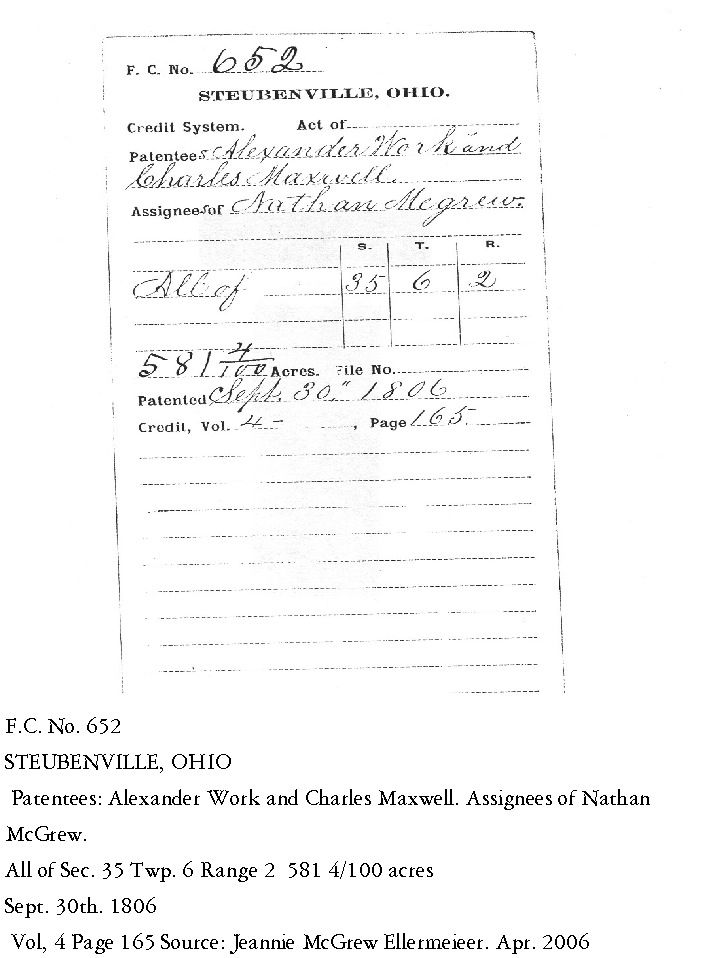 F. C. No. 652
STEUBENVILLE, OHIO.
Credit System. Act of
Patentees Alexander Work and
Charles Maxwell.
Assignees of Nathan Megrew.
S. T. R.
All of 35 6 2
581 4/100 Acres. File No.
Patented Sept. 30." 1806
Credit, Vol. 4 - , Page 165.
F.C. No. 652
STEUBENVILLE, OHIO
Patentees: Alexander Work and Charles Maxwell. Assignees of Nathan
McGrew.
All of Sec. 35 Twp. 6 Range 2 581 4/100 acres
Sept. 30th. 1806
Vol, 4 Page 165 Source: Jeannie McGrew Ellermeieer. Apr. 2006